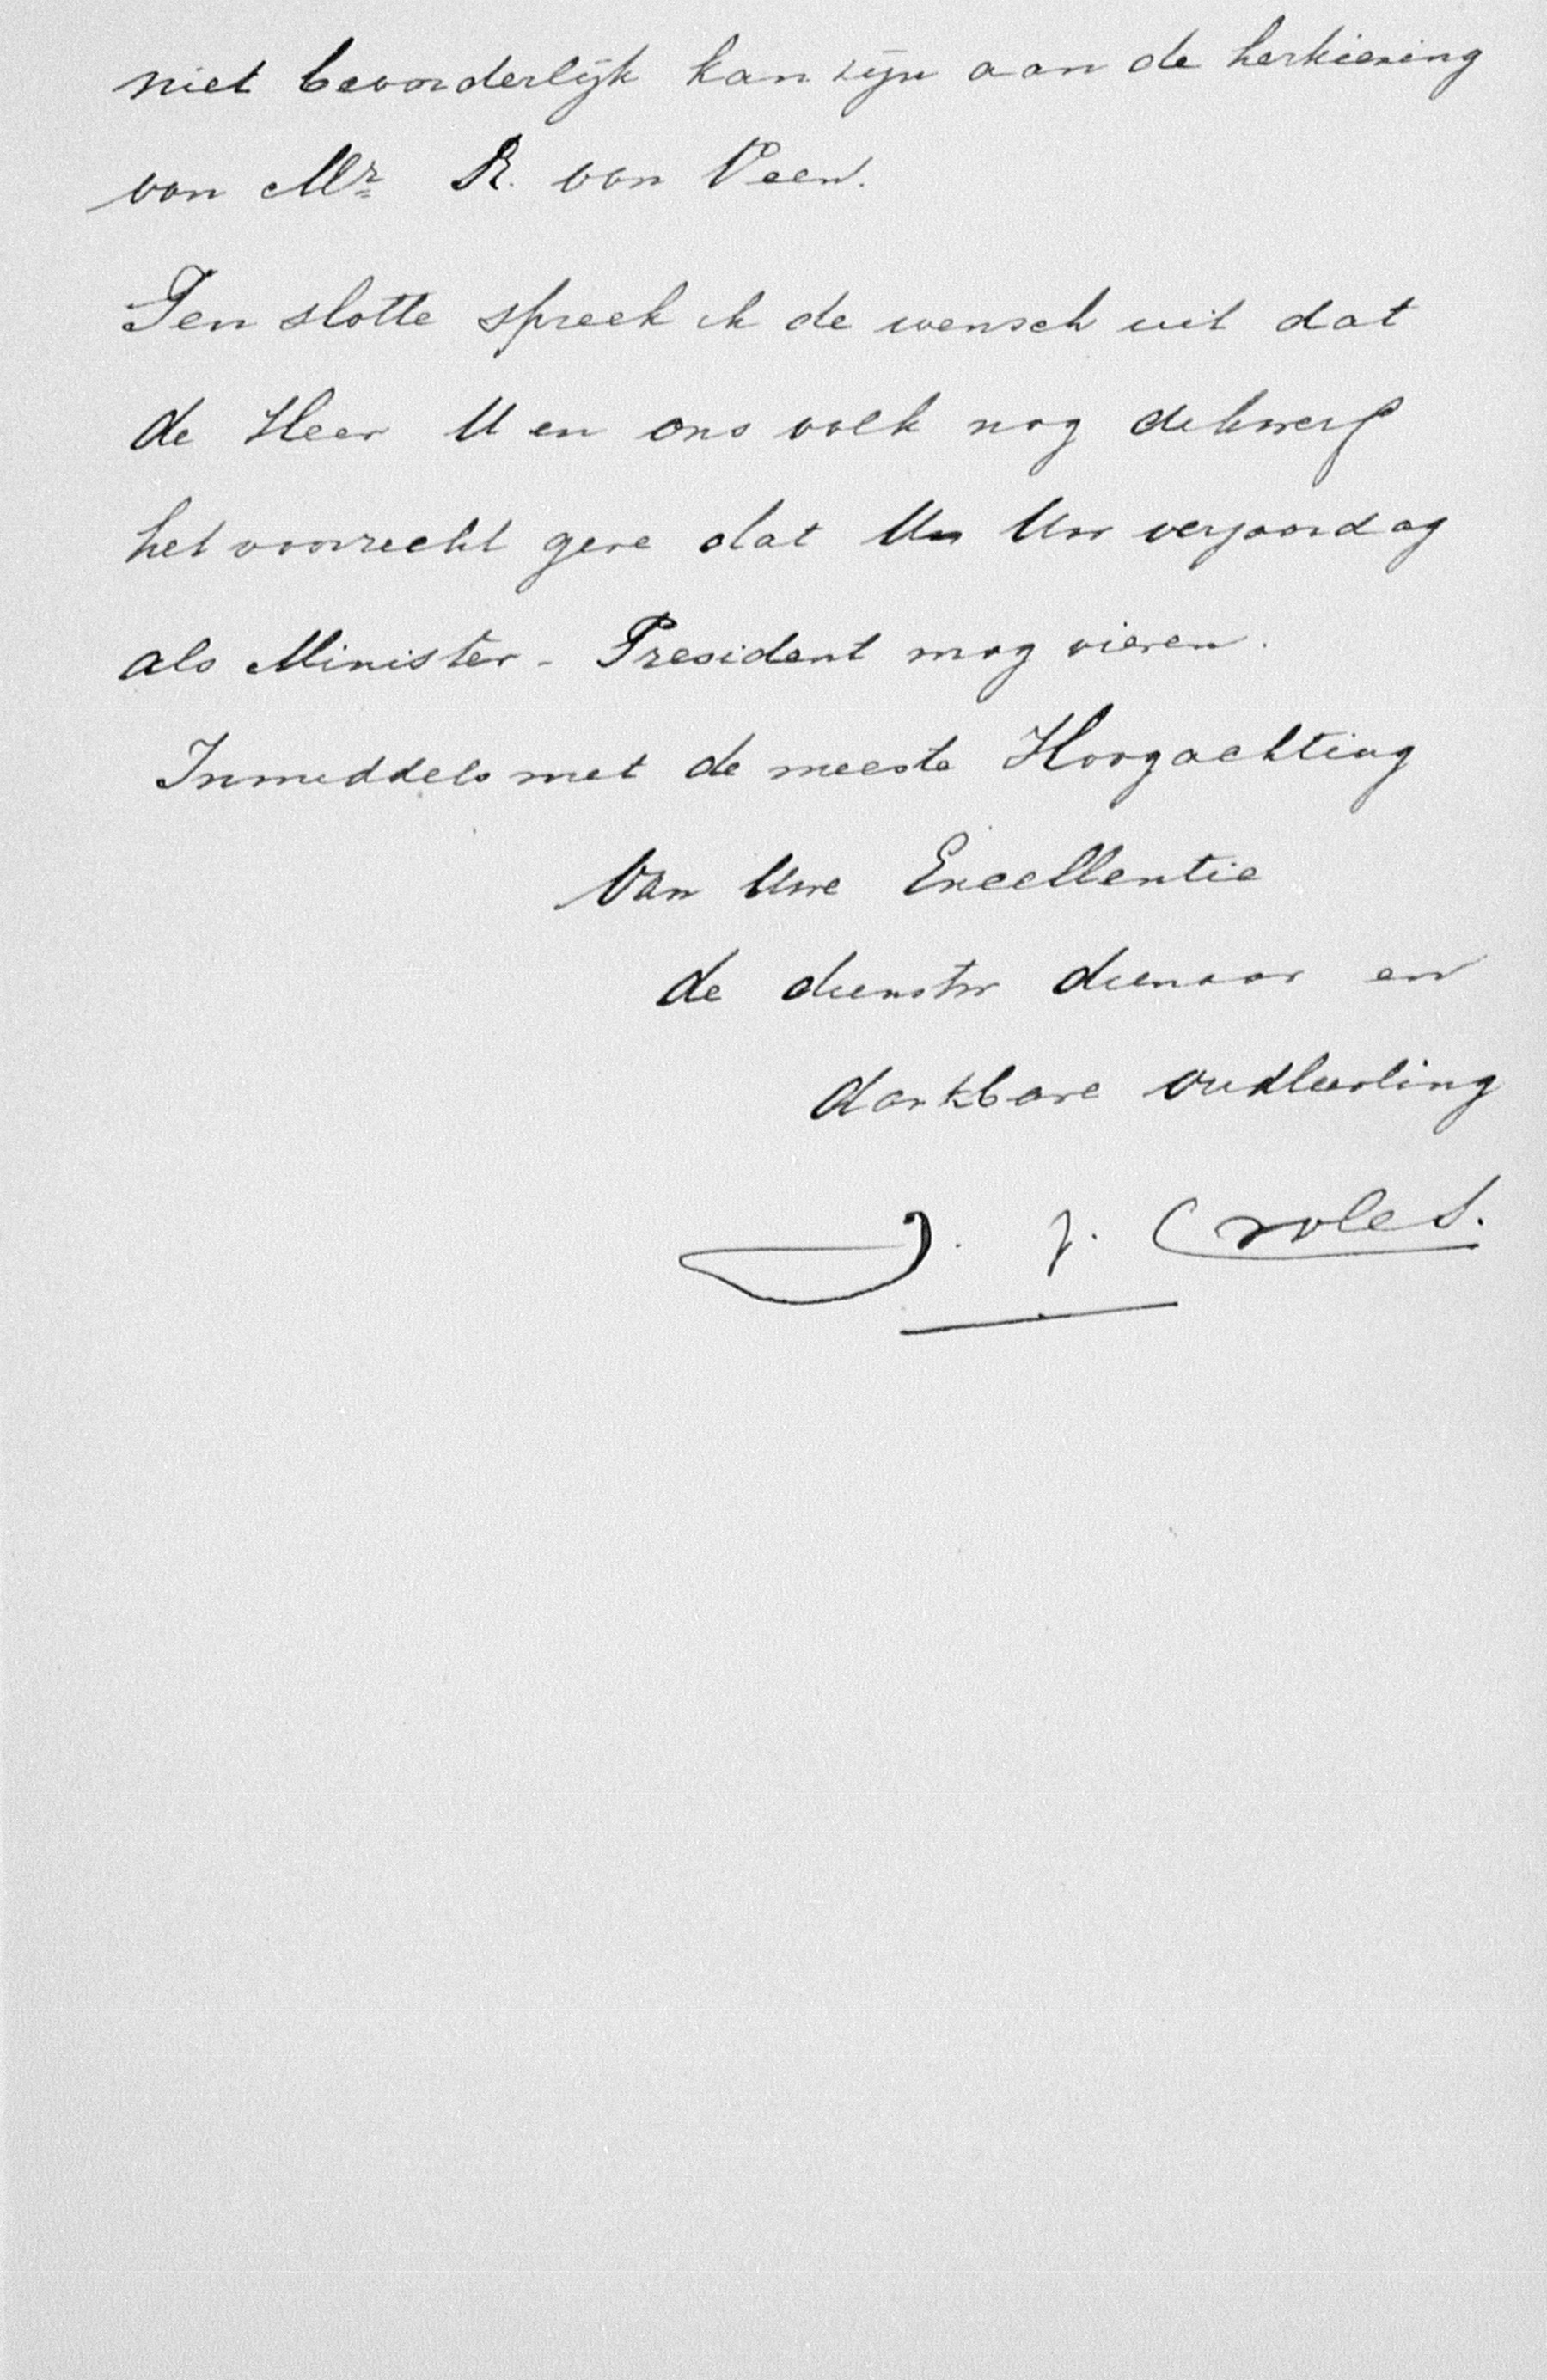 niet bevorderlijk kan zijn aan de herkiezing
van Mr R. van Veen.
Ten slotte spreek ik de wensch uit dat
de Heer U en ons volk nog dikwerf
het voorrecht geve dat U Uw verjaardag
als Minister - President mag vieren.
Inmiddels met de meeste Hoogachting
Van Uwe Excellentie
de dienstw dienaar en
dankbare oudleerling
J. J. Croles.